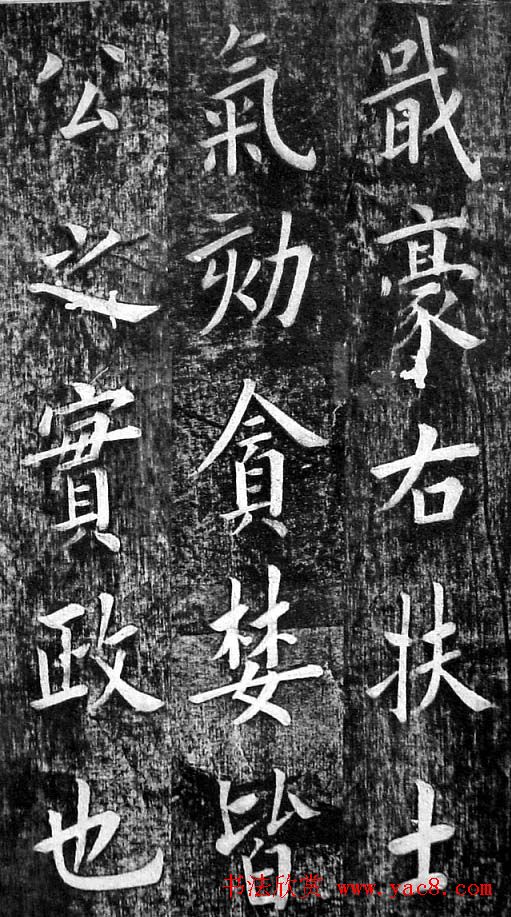 戢豪右扶士
氣劾貪婪皆
公之實政也
书法欣赏 www.yac8.com